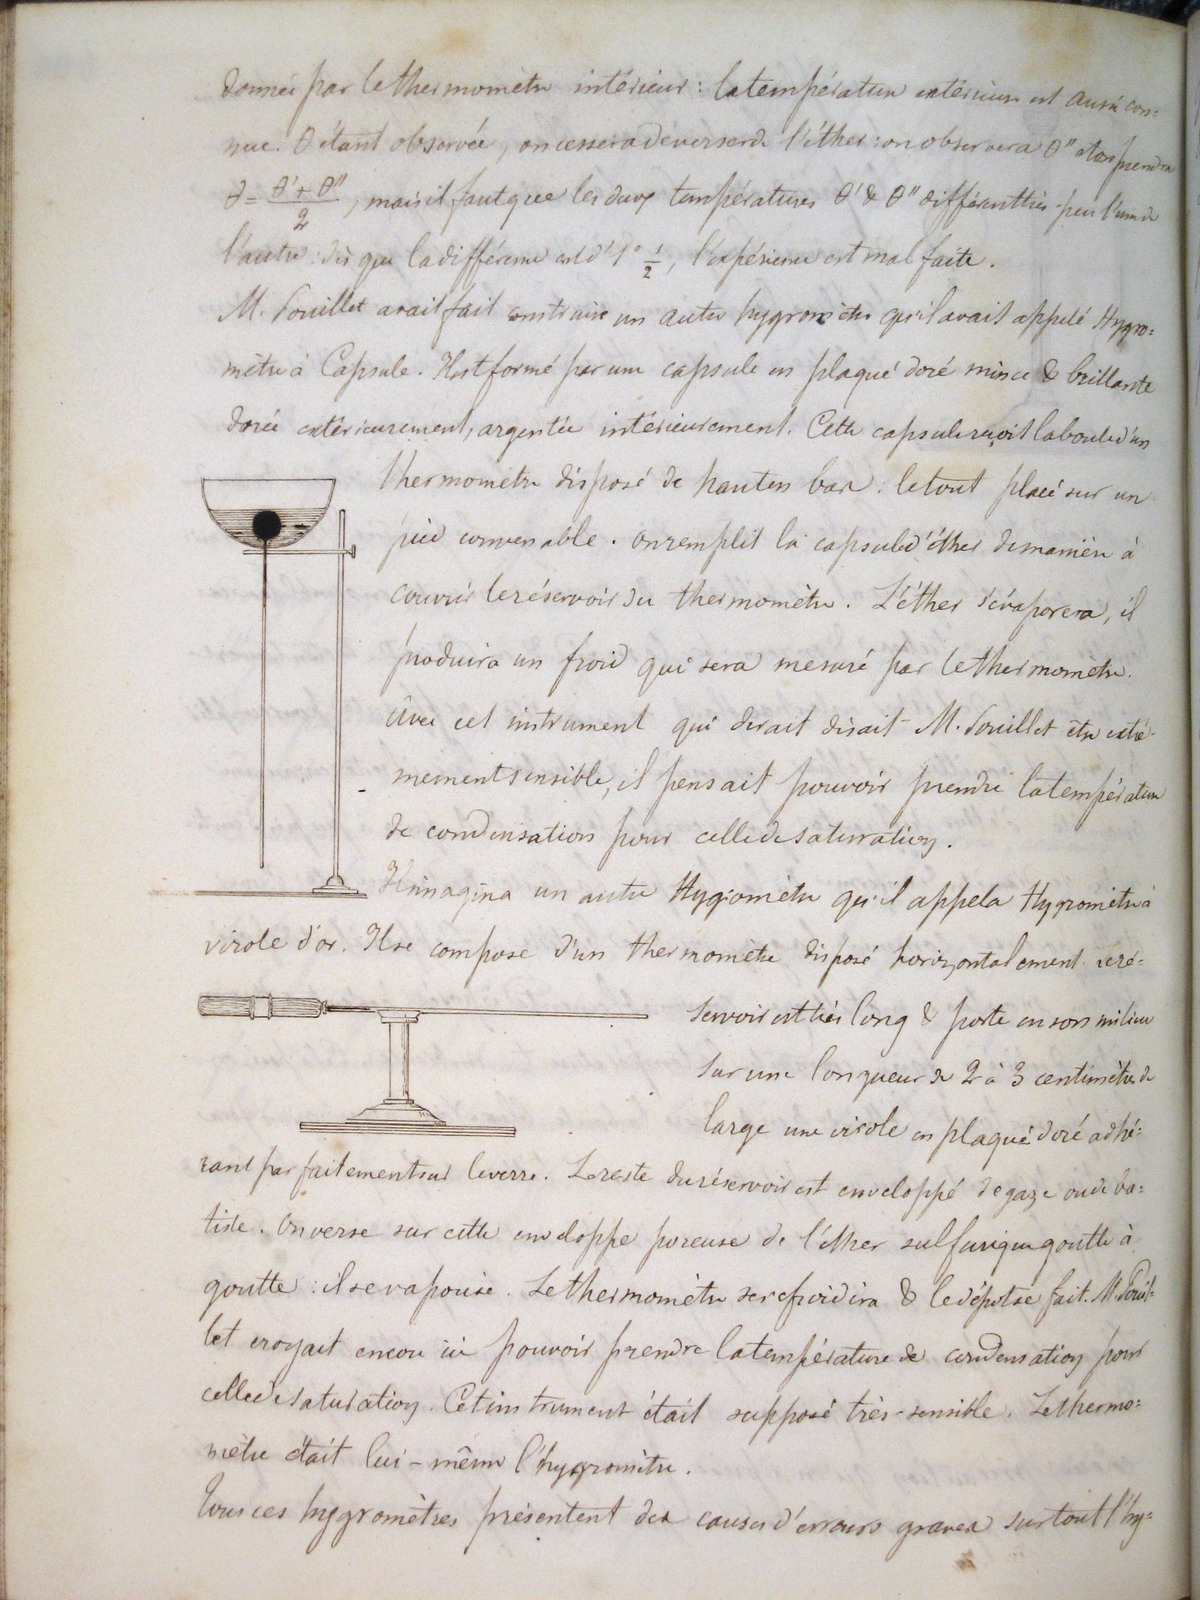 donnée par le thermomètre intérieur : la température extérieure est aussi con=
nue. θ' étant observée, on cessera de verser de l'éther : on observera θ'' et on prendra
θ = θ' + θ'' / 2, mais il faut que les deux températures θ' & θ'' diffèrent très-peu l'une de
l'autre : dès que la différence est d' 1° 1/2, l'expérience est mal faite.
M. Pouillet avait fait construire un autre hygromètre qu'il avait appelé Hygro=
mètre à Capsule. Il est formé par une capsule en plaqué doré mince & brillante
dorée extérieurement, argentée intérieurement. Cette capsule reçoit la boule d'un
thermomètre disposé de haut en bas : le tout placé sur un
pied convenable. on remplit la capsule d'éther de manière à
couvrir le réservoir du thermomètre. L'éther s'évaporera, il
produira un froid qui sera mesuré par le thermomètre.
Avec cet instrument qui devait disait M. Pouillet être extrê-
mement sensible, il pensait pouvoir prendre la température
de condensation pour celle de saturation.
Il imagina un autre Hygromètre qu'il appela Hygromètre à
virole d'or. Il se compose d'un thermomètre disposé horizontalement. Le ré=
servoir est très long & porte en son milieu
sur une longueur de 2 à 3 centimètres de
large une virole en plaqué doré adhé=
rant parfaitement sur le verre. Le reste du réservoir est enveloppé de gaze ou de ba=
tiste. On verse sur cette enveloppe poreuse de l'éther sulfurique goutte à
goutte : il se vaporise. Le thermomètre se refroidira & le dépôt se fait. M. Pouil=
let croyait encore ici pouvoir prendre la température de condensation pour
celle de saturation. Cet instrument était supposé très-sensible. Le thermo=
mètre était lui-même l'hygromètre.
Tous ces hygromètres présentent des causes d'erreurs graves surtout l'hy=